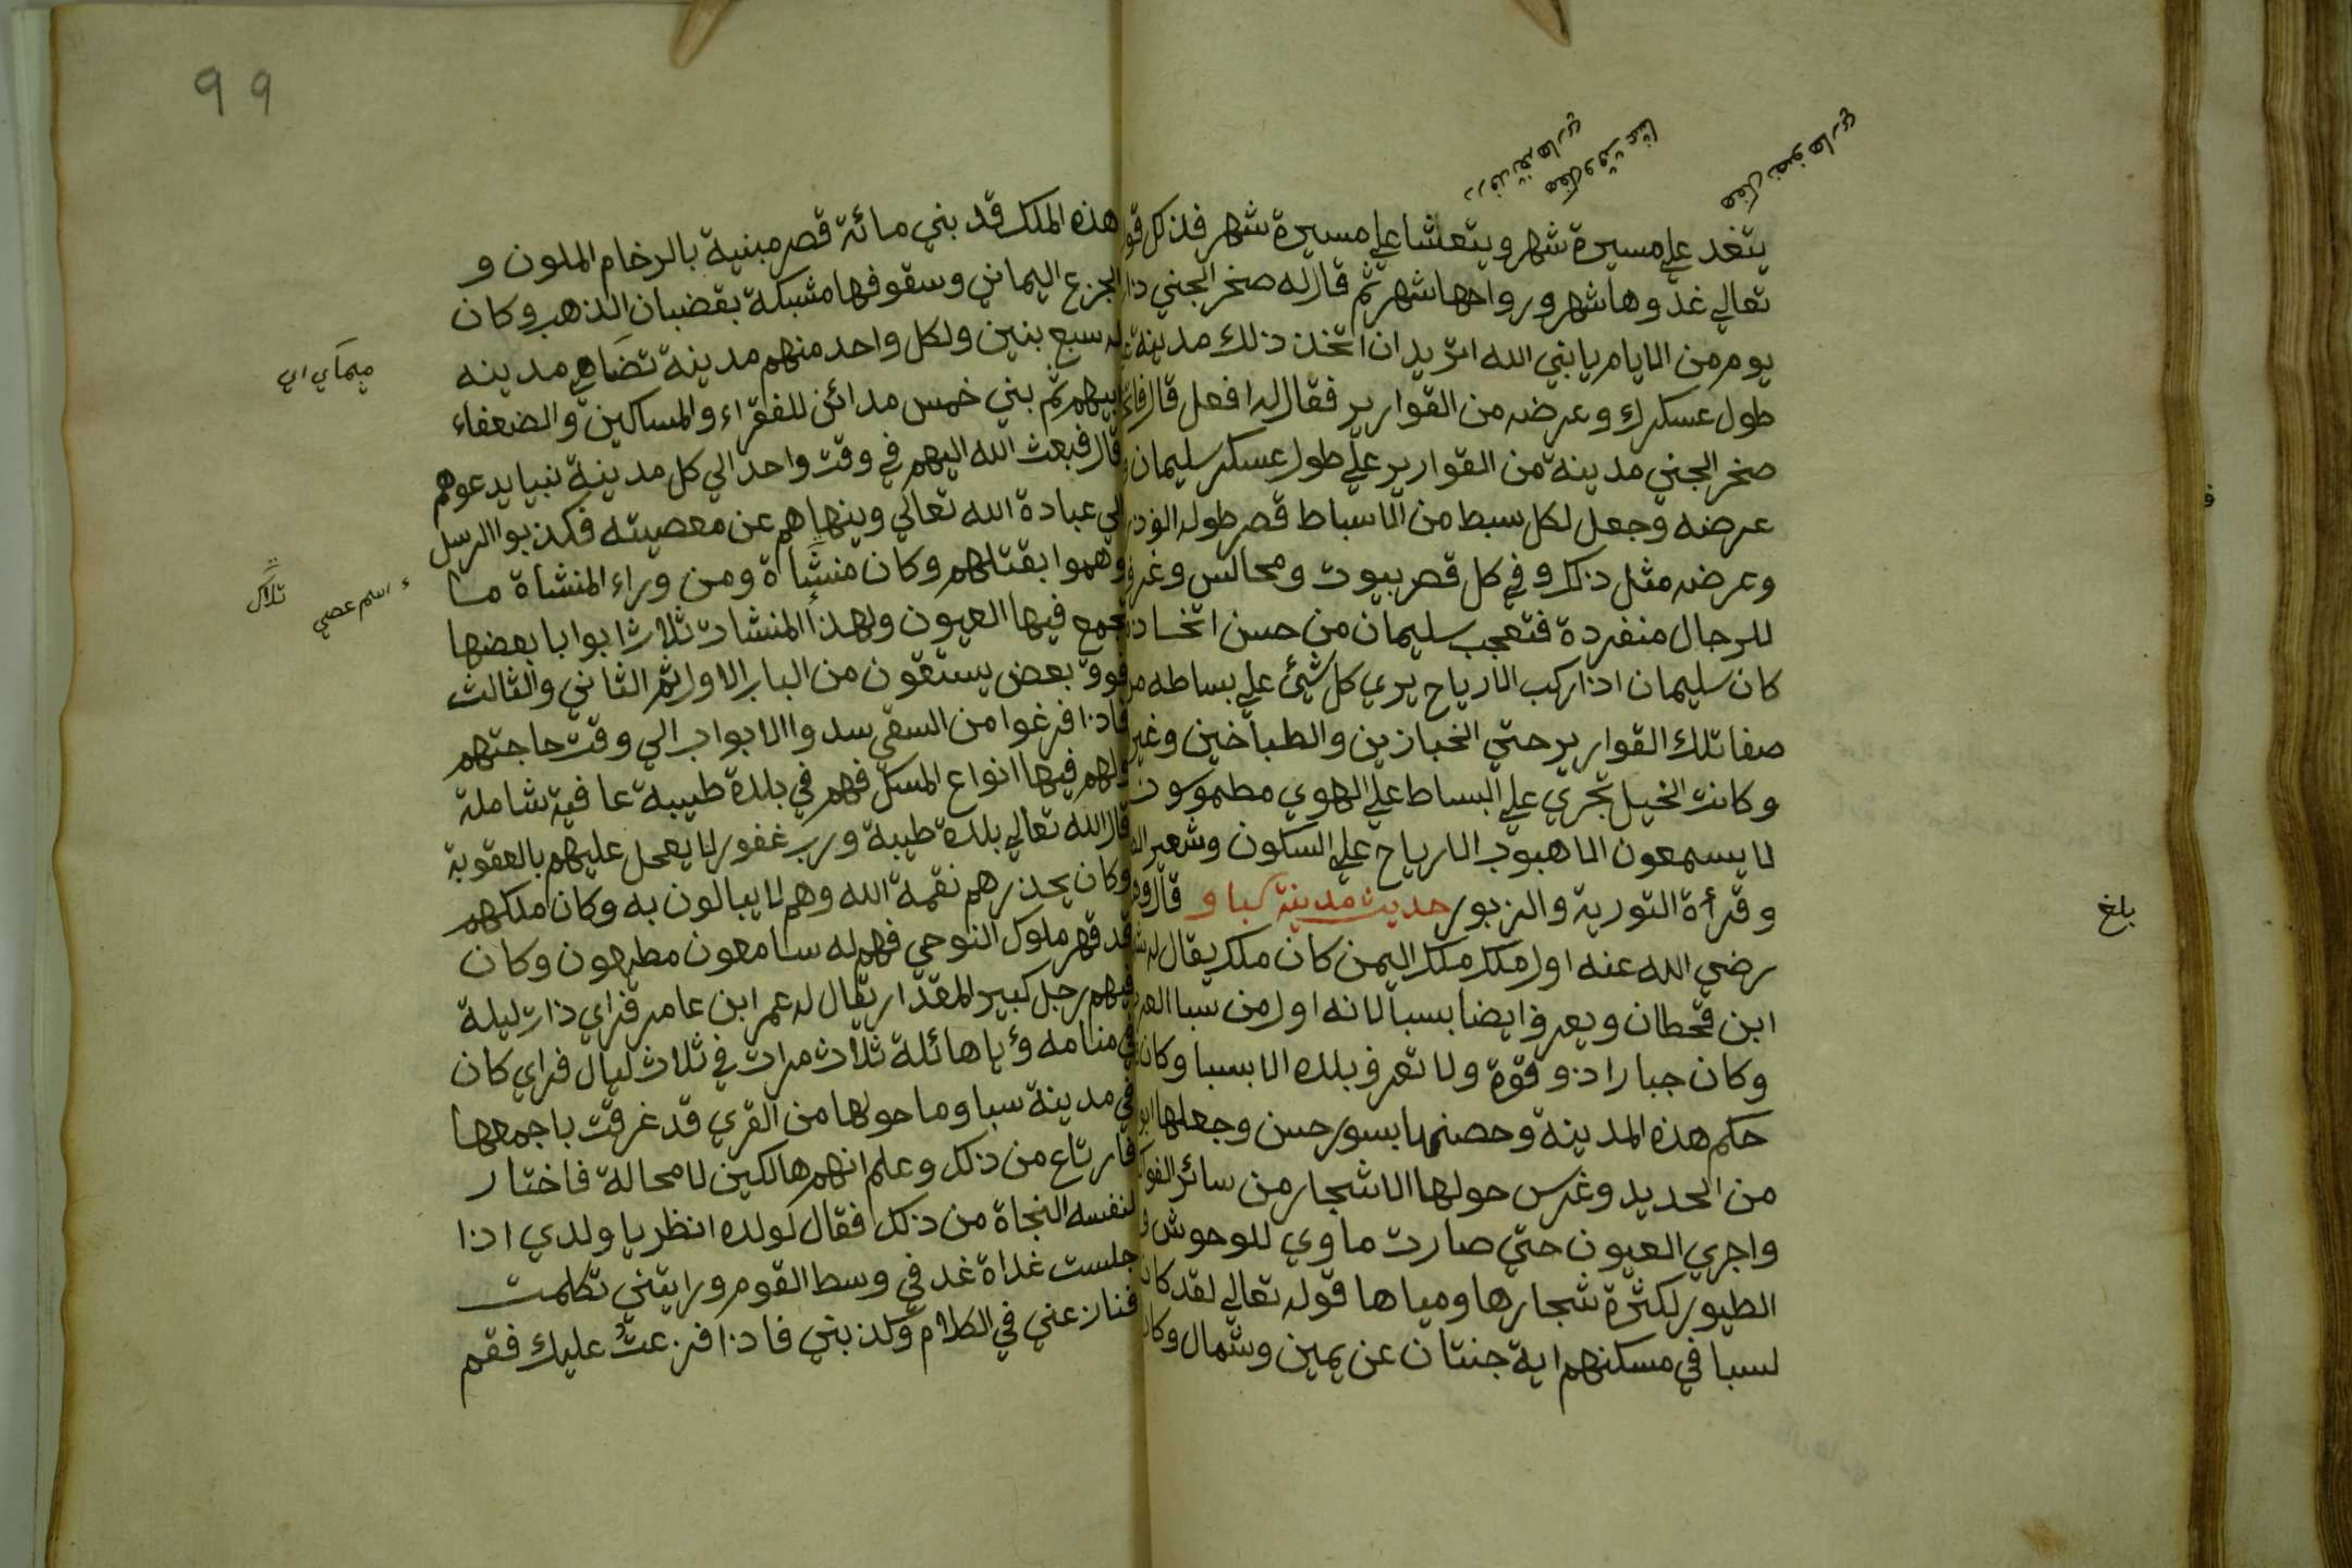 يتغد علي مسيرة شهر ويتعشا علي مسيرة شهر فذلك
تعالي غدوها شهر ورواحها شهر ثم قال له صخر الجني
يوم من الايام يا بني الله اتريد ان اتخذ ذلك مدينة
طول عسكرك وعرضه من القوارير فقال له افعل قال
صخر الجني مدينة من القوارير علي طول عسكر سليمان
عرضه وجعل لكل سبط من الاسباط قصر طوله الف
وعرضه مثل ذلك وفي كل قصر بيوت ومجالس وغر
للرجال منفردة فتعجب سليمان من حسن اتخاذ
كان سليمان اذا ركب الارياح يري كل شيئ علي بساطه من
صفا تلك القوارير حتي الخبازين والطباخين وغير
وكانت الخيل تجري علي البساط علي الهوي مطموسون
لا يسمعون الا هبوب الارياح علي السكون وشعير
وقرأة التورية والزبور حديث مدينة سبا و قال
رضي الله عنه اول ملك ملك اليمن كان ملك يقال له
ابن قحطان ويعرف ايضا بسبا لانه اول من سبا
وكان جبارا ذو قوة ولا تعرف بلده الا بسبا وكان
حكم هذه المدينة وحصنها بسور حسن وجعلها
من الحديد وغرس حولها الاشجار من سائر الفو
واجري العيون حتي صارت ماوي للوحوش و
الطيور لكثرة شجارها ومياها قوله تعالي لقد كان
لسبا في مسكنهم اية جنتان عن يمين وشمال وكان
بلغ
99
هذه الملك قد بني مائة قصر مبنية بالرخام الملون و
الجزع اليماني وسقوفها مشبكة بقضبان الذهب وكان
له سبع بنين ولكل واحد منهم مدينة تضاهي مدينه
ابيهم ثم بني خمس مدائن للفقراء والمساكين والضعفاء
قال فبعث الله اليهم في وقت واحد الي كل مدينة نبيا يدعوهم
الي عبادة الله تعالي وينهاهم عن معصيته فكذبوا الرسل
وهموا بقتلهم وكان منشأة ومن وراء المنشأة ما
تجمع فيها العيون ولهذا المنشات ثلاث ابوابا بعضها
فوق بعض يستقون من الباب الاول ثم الثاني والثالث
فاذا فرغوا من السقي سدوا الابواب الي وقت حاجتهم
ولهم فيها انواع المسك فهم في بلدة طيبة عافية شاملة
قال الله تعالي بلدة طيبة ورب غفور لا يعجل عليهم بالعقوبة
وكان يحذرهم نقمة الله وهم لا يبالون به وكان ملكهم
قد قهر ملوك النوحي فهم له سامعون مطيعون وكان
فيهم رجل كبير المقدار يقال له عمر ابن عامر فراي ذات ليلة
في منامه رؤيا هائلة ثلاث مرات في ثلاث ليال فراي كان
في مدينة سبا وما حولها من القري قد غرقت باجمعها
فارتاع من ذلك وعلم انهم هالكين لا محالة فاختار
لنفسه النجاة من ذلك فقال لولده انظر يا ولدي اذا
جلست غداة غد في وسط القوم ورايتني تكلمت
فنازعني في الكلام وكذبني فاذا فزعت عليك فقم